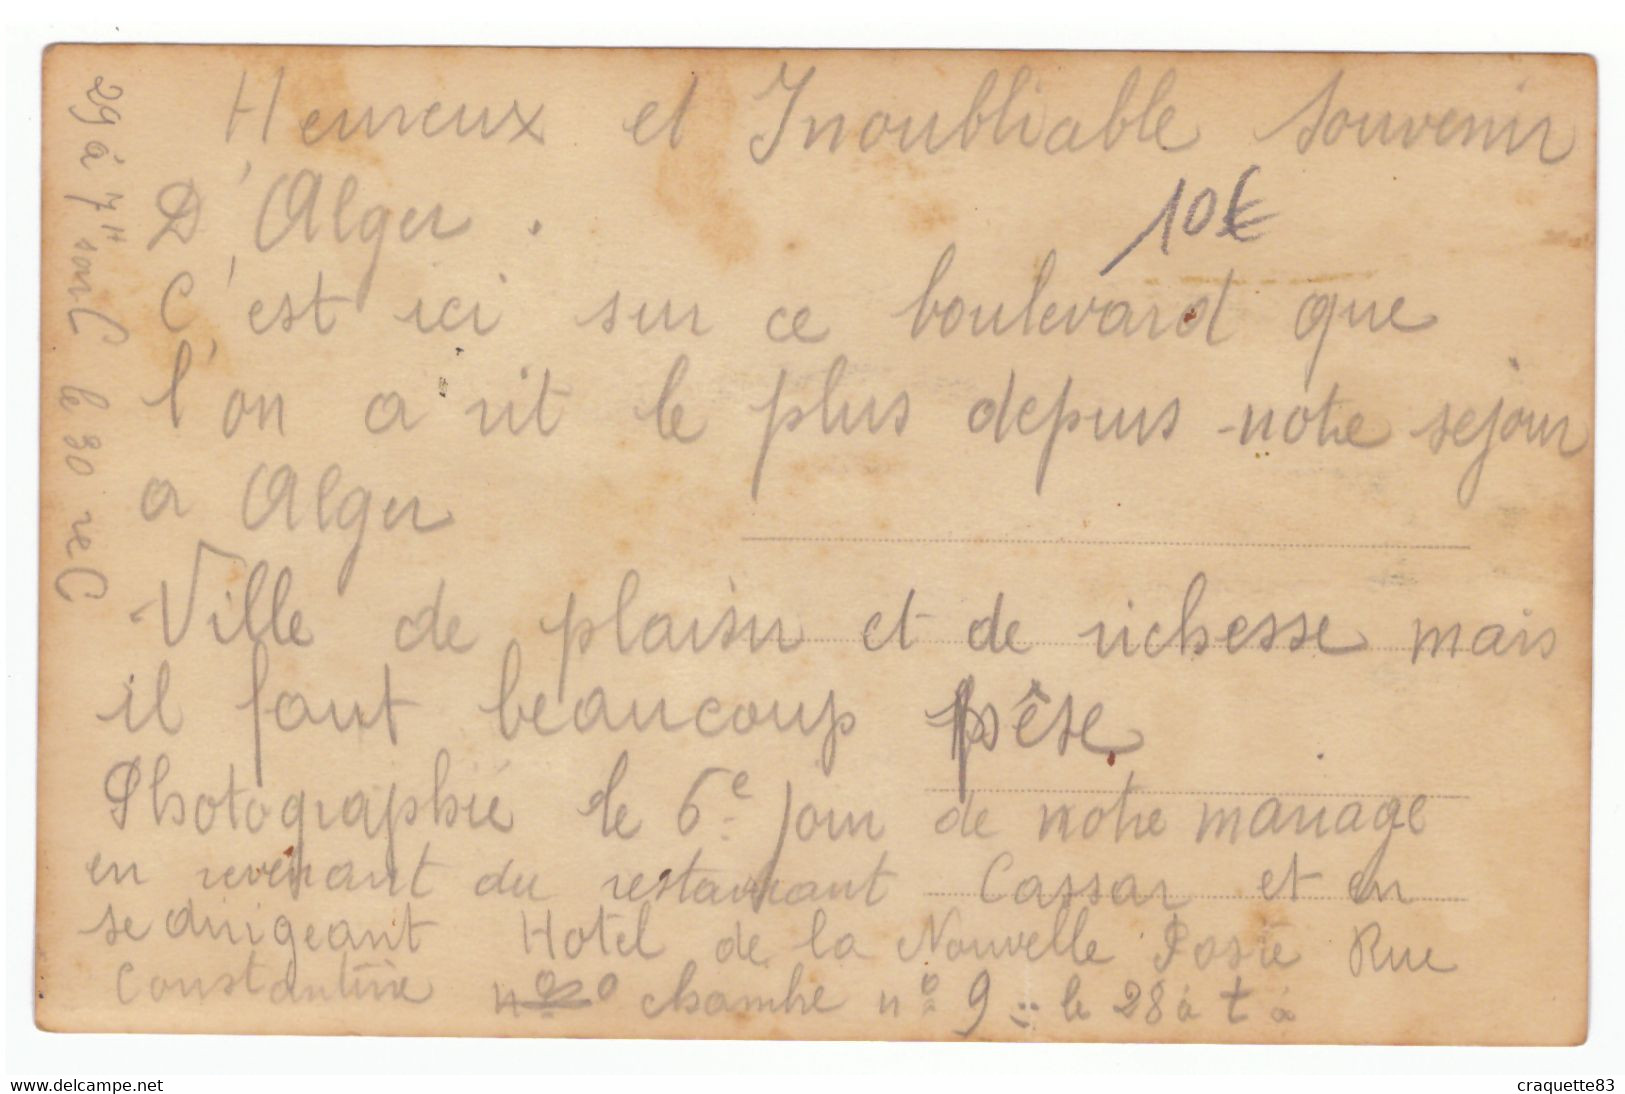 Heureux et Inoubliable souvenir
D'Alger.
10€
C'est ici sur ce boulevard que
l'on a rit le plus depuis notre sejour
a Alger
Ville de plaisir et de richesse mais
il faut beaucoup pèse
Photographié le 6e jour de notre mariage
en revenant du restaurant Cassar et en
se dirigeant Hotel de la Nouvelle Poste Rue
Constantine nº chambre nº 9 le 28 à
29 à 7H le 30
www.delcampe.net
craquette83